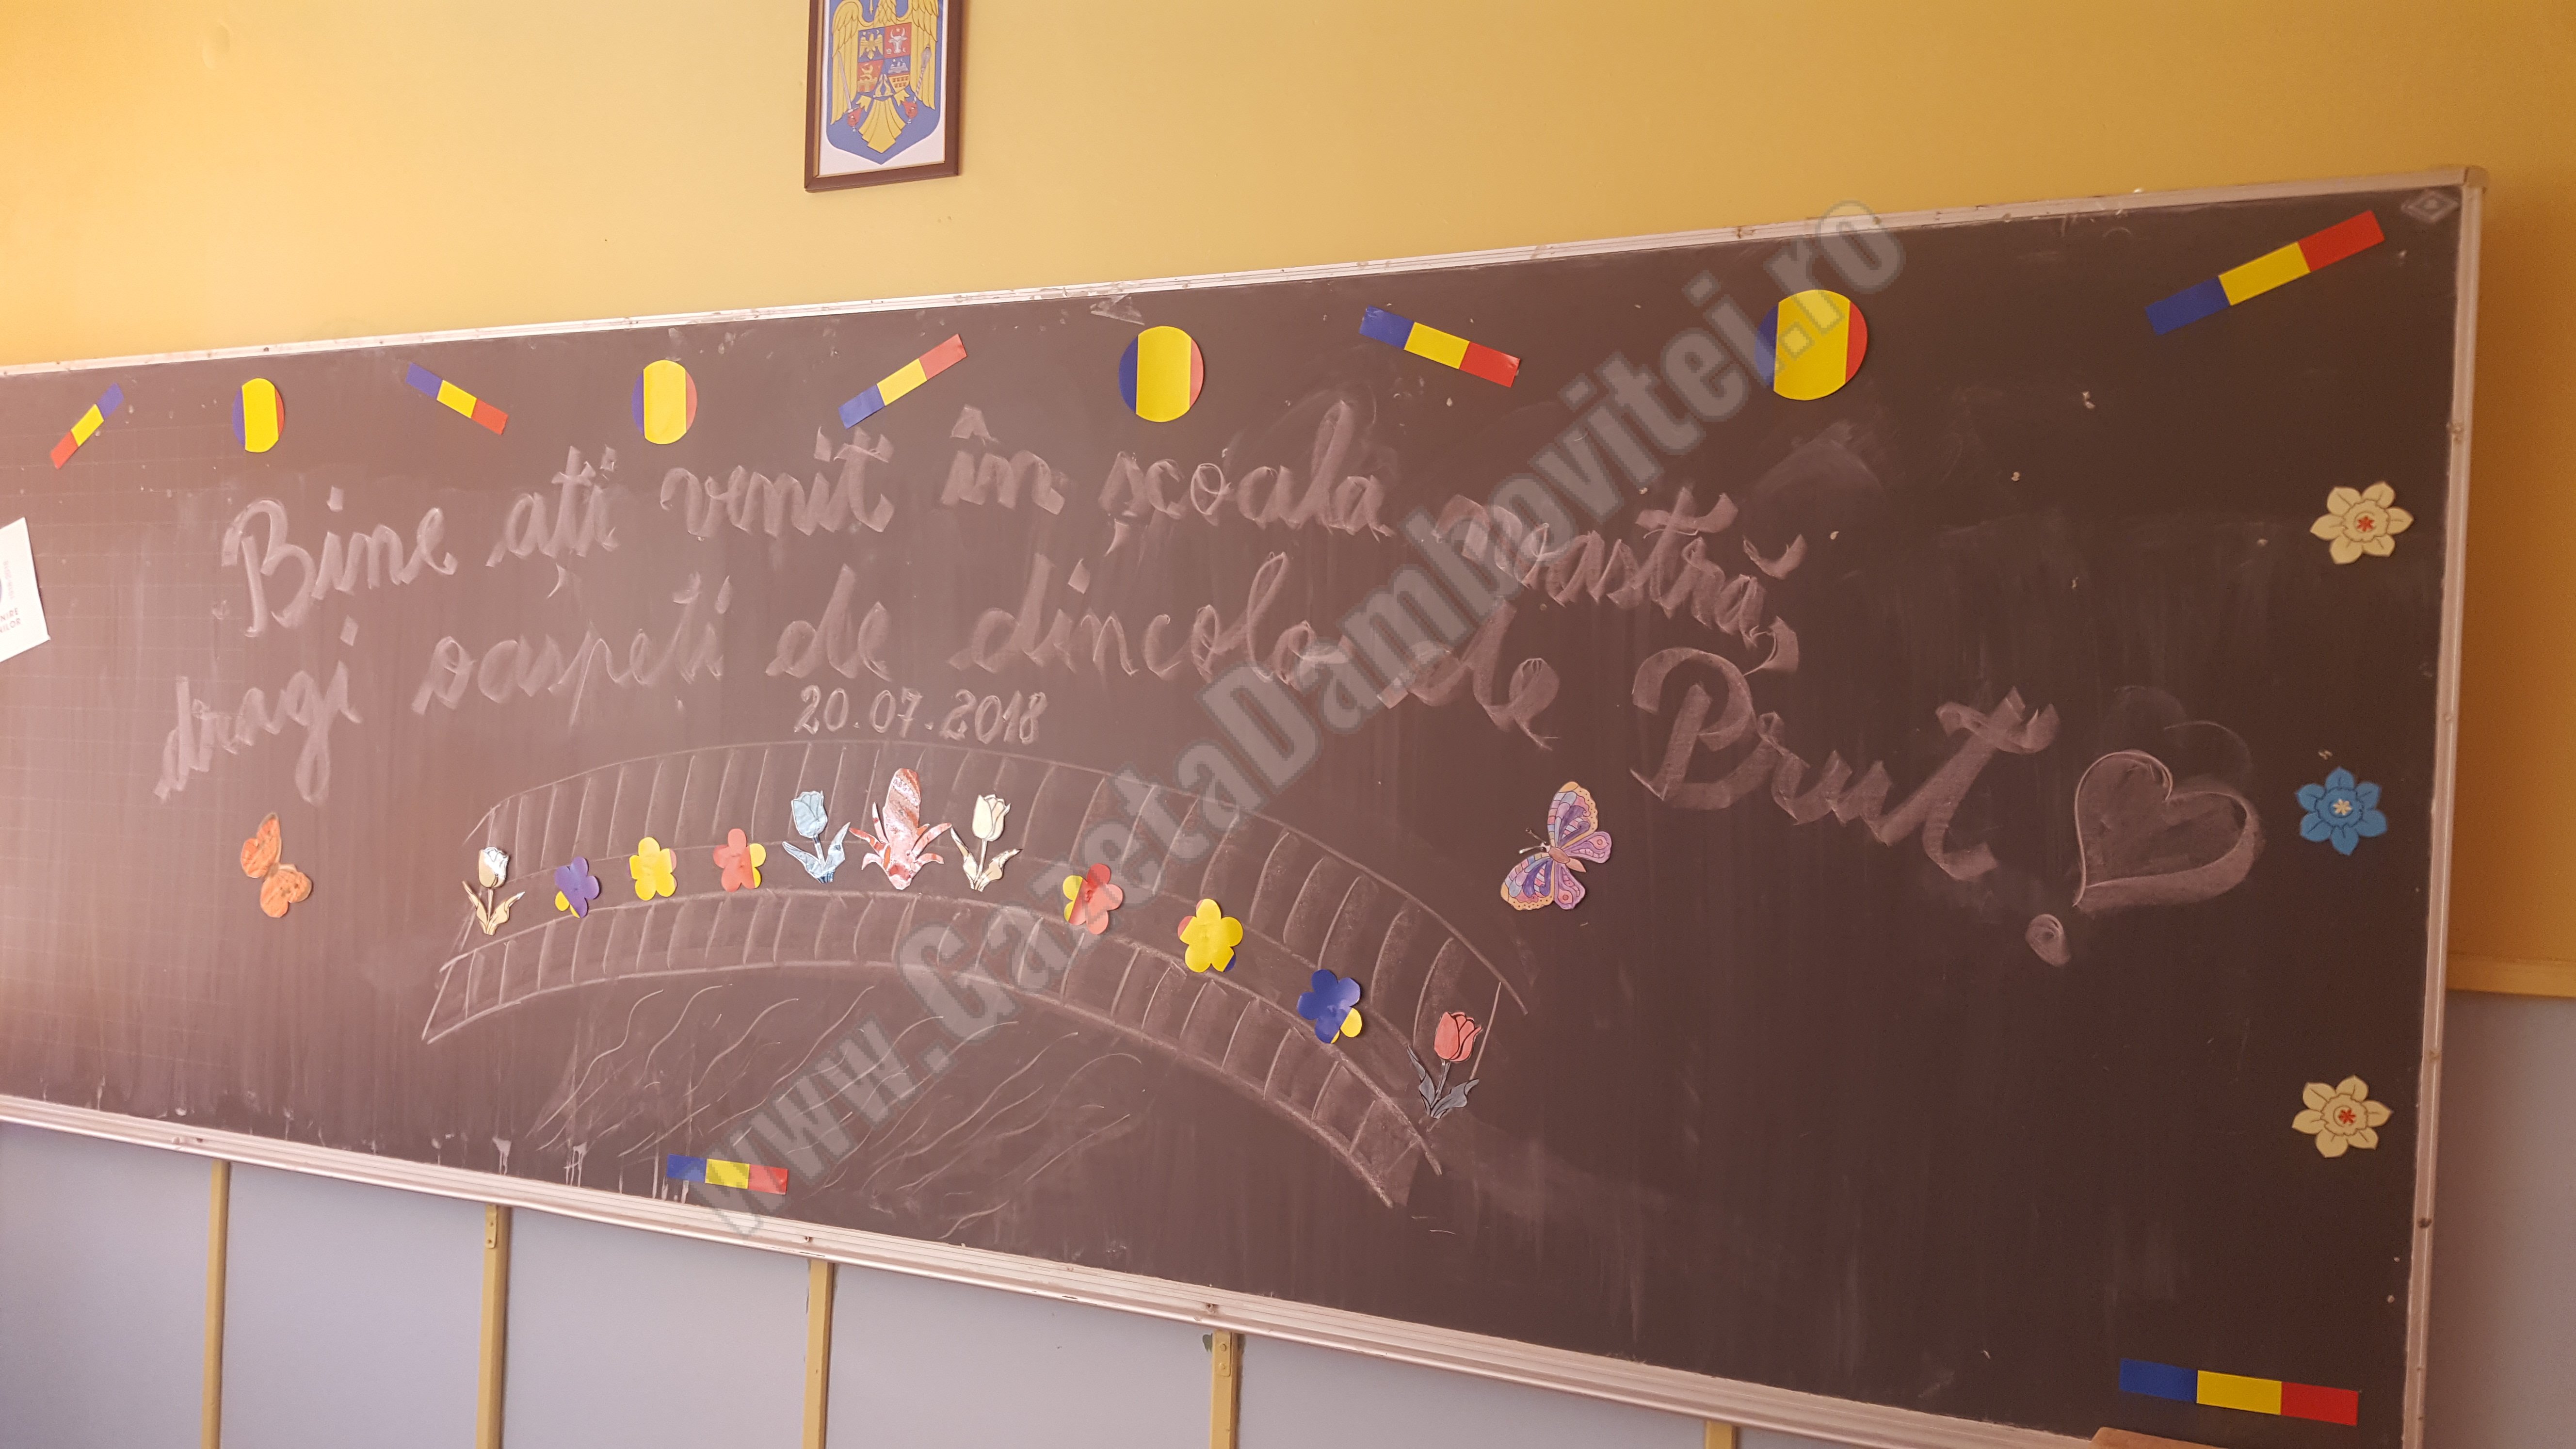 Bine ați venit în școala noastră,
dragi oaspeți de dincolo de Prut!
20.07.2018
www.GazetaDambovitei.ro